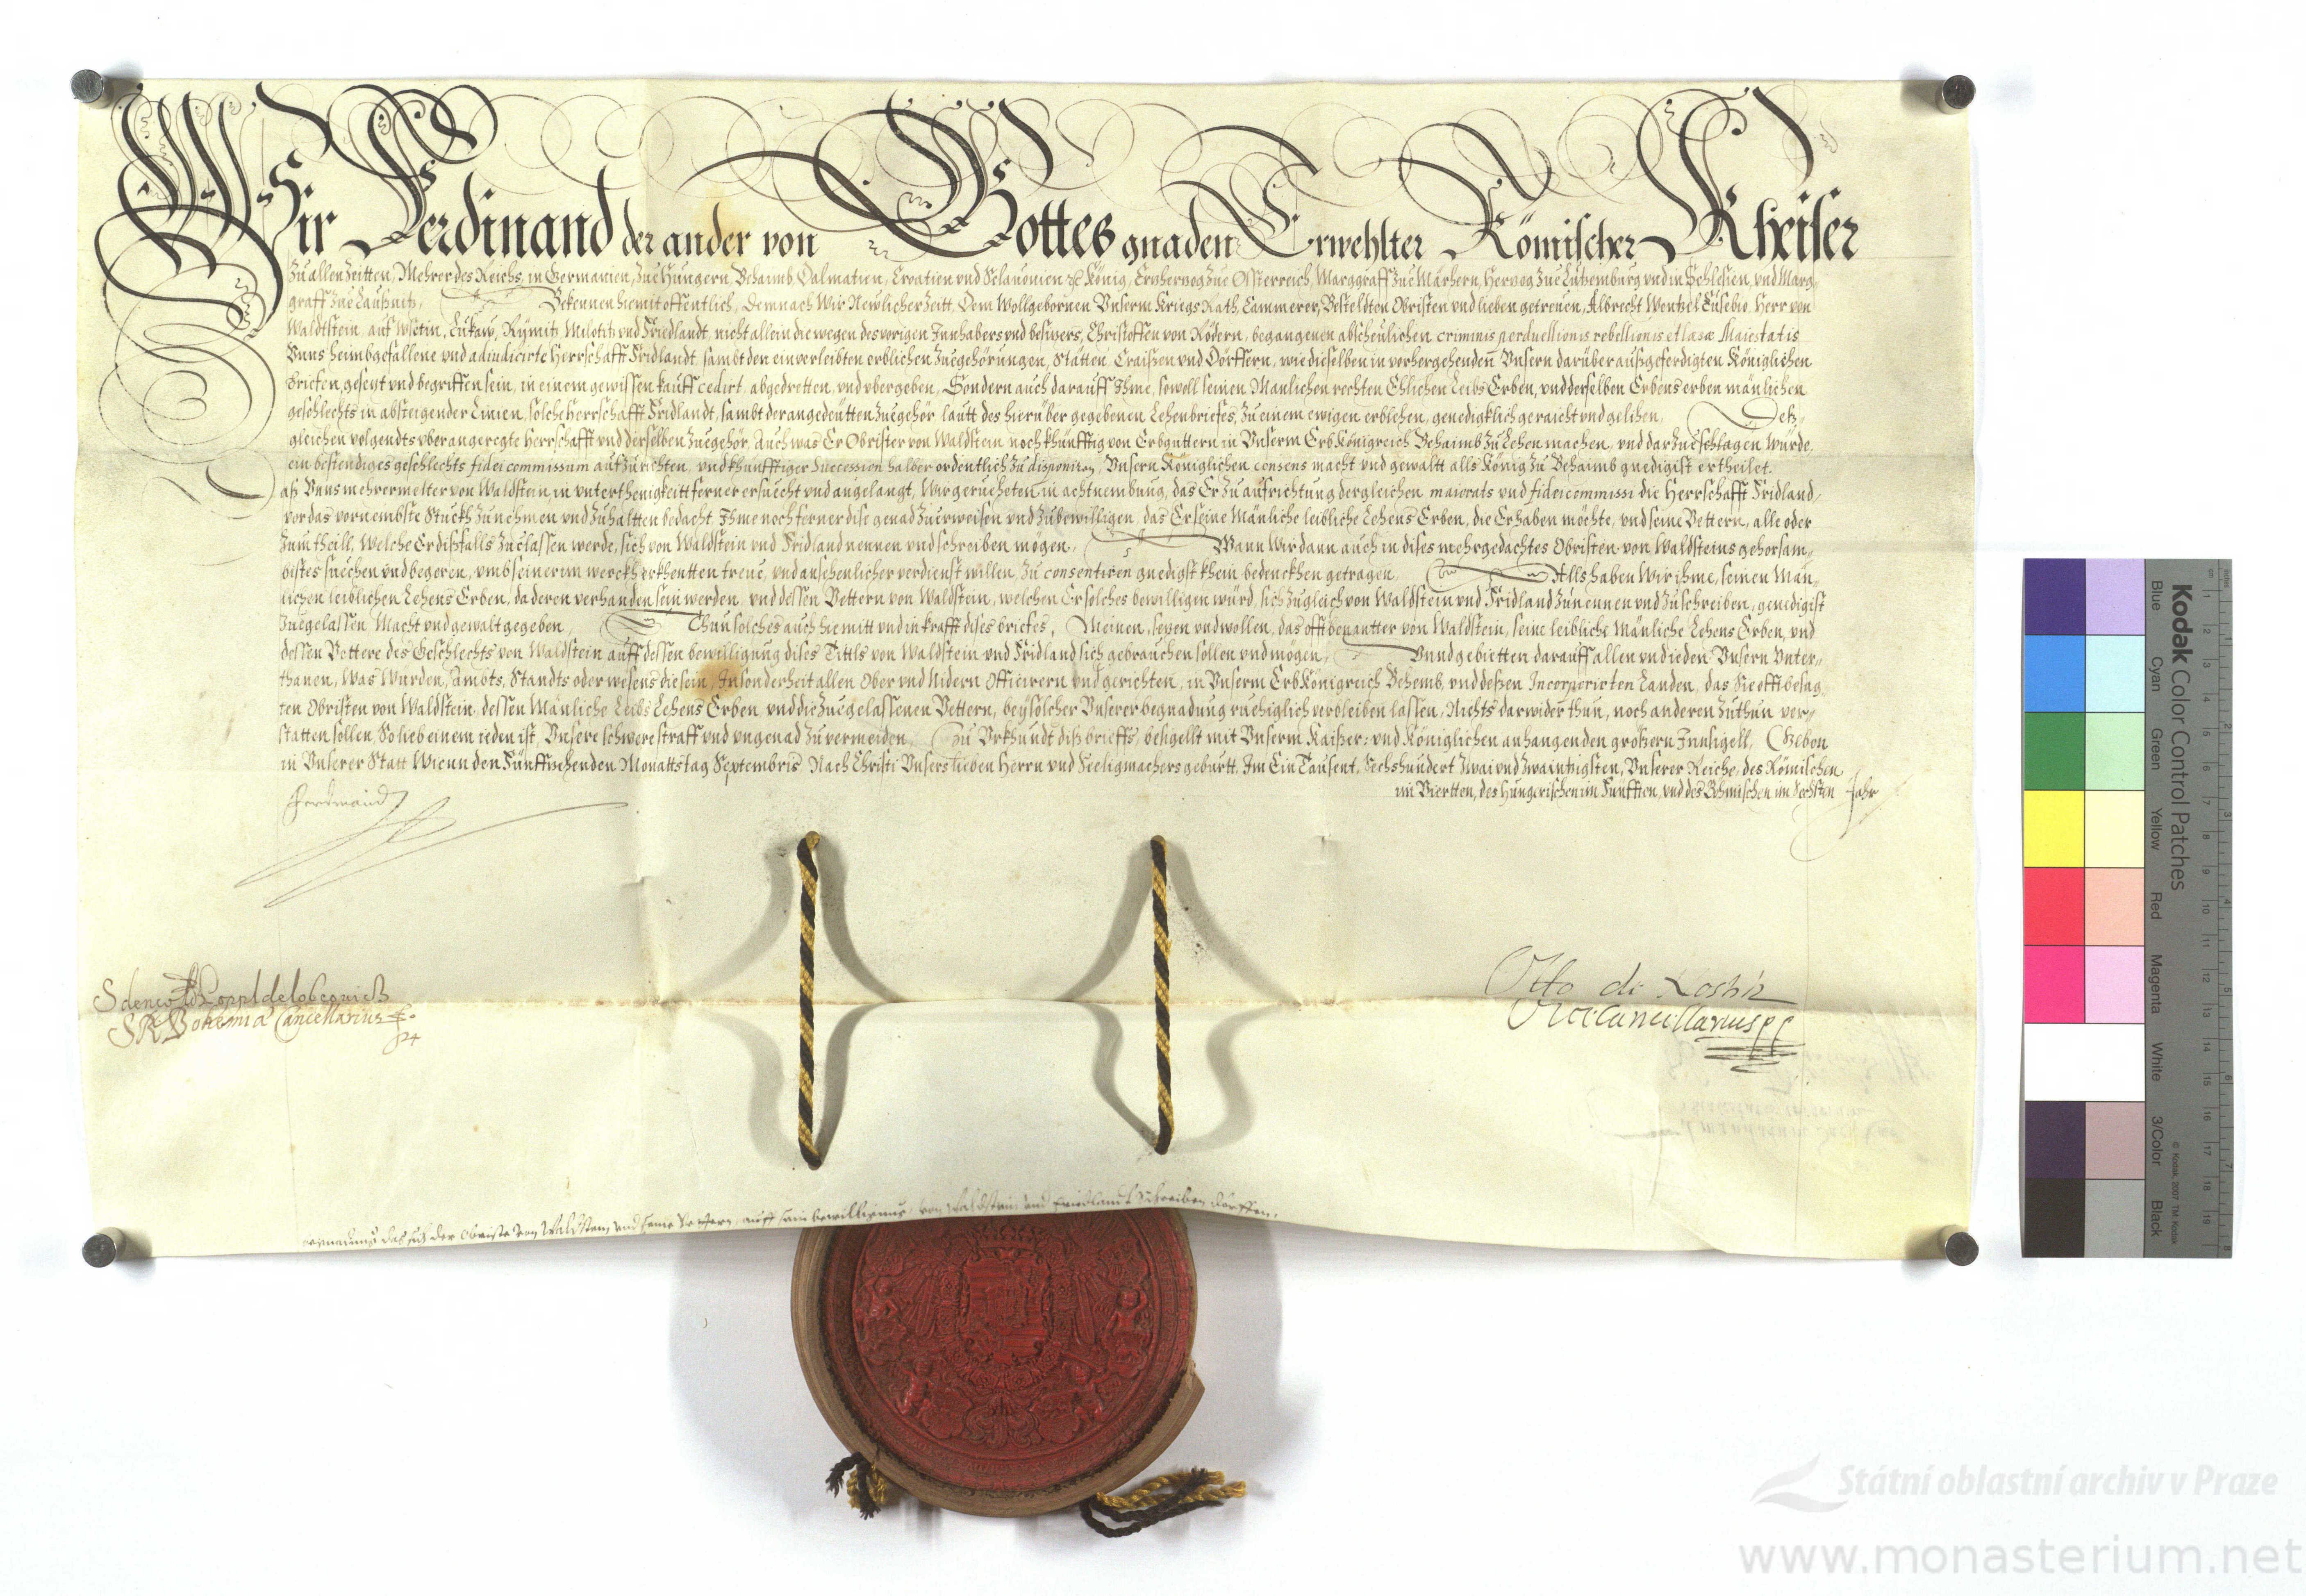 Wir Ferdinand der ander von Gottes gnaden Erwehlter Römischer Kheiser
Zu allen Zeitten, Mehrer des Reichs, in Germanien, Zue Hungern, Behaimb, Dalmatien, Croatien vnd Sclauonien &c König, Ertzhertzog Zue Össterreich, Marggraff Zue Märhern, Hertzog Zue Lützemburg vnd in Schlesien, vnd Marg-
graff Zue Laußnitz, Bekennen hiemit offentlich, Demnach Wir Newlicher Zeitt, Dem Wollgebornen Vnserm Kriegs Rath, Cammerer, Besteldten Obristen vnd lieben getreuen, Albrecht Wentzel Eusebio Herr von
Waldtstein, auf Wsetin, Lukaw, Rymitz Milotitz vnd Friedlandt, nicht allein die wegen des vorigen Innhabers vnd besitzers, Christoffen von Rödern, begangenen abscheulichen criminis perduellionis rebellionis et læsæ Maiestatis
Vnns heimbgefallene vnd adiudicirte Herrschafft Fridlandt, sambt den einverleibten erblichen Zuegehörungen, Stätten, Craißen vnd Dörffern, wie dieselben in vorhergehendenn Vnsern darüber außgeferdigten Königlichen
briefen, gesetzt vnd begriffen sein, in einem gewissen kauff cedirt, abgedretten, vnd vbergeben, Sondern auch darauff Ihme, sowoll seinen Manlichen rechten Ehlichen Leibs Erben, vnd derselben Erbens erben mänlichen
geschlechts in absteigender Linien, solche Herrschafft Fridlandt, sambt der angedeütten Zuegehör, lautt des hierüber gegebenen Lehenbriefes, Zu einem ewigen erblehen, genedigklich geraicht vnd gelihen, Detz-
gleichen volgendts vber angeregte Herrschafft vnd derselben Zuegehör, Auch was Er Obrister von Waldstein noch khünfftig von Erbguttern in Vnserm Erb Königreich Behaimb Zu Lehen machen, vnd darzue schlagen wurde,
ein bestendiges geschlechts fidei commissum aufzurichten, vnd khünfftiger Succession halber ordentlich Zu disponiren, Vnsern Königlichen consens macht vnd gewaltt alls König Zu Behaimb gnedigist ertheilet.
aß Vnns mehrermelter von Waldstein in vnterthenigkeitt ferner ersuecht vnd angelangt, Wir gerucheten in achtnembung, das Er Zu aufrichtung dergleichen maiorats vnd fidei commissi die Herrschafft Fridland,
vor das vornembste Stuckh Zunehmen vnd Zuhaltten bedacht, Ihme noch ferner dise genad Zu erweisen vnd Zubewilligen, das Er seine Mänliche leibliche Lehens Erben, die Er haben möchte, vnd seine Vettern, alle oder
Zum theill, welche Er dißfalls Zuelassen werde, sich von Waldstein vnd Fridland nennen vnd schreiben mögen, Wann Wir dann auch in dises mehrgedachtes Obristen von Waldsteins gehorsam-
bistes suechen vnd begeren, vmb seiner im werckh erkhentten treue, vnd ansehenlicher verdienst willen, Zu consentiren gnedigst khein bedenckhen getragen, Alls haben Wir ihme, seinen Män-
lichen leiblichen Lehens Erben, da deren verhanden sein werden, vnd dessen Vettern von Waldstein, welchen Er solches bewilligen würd, sich zugleich von Waldstein vnd Fridland Zunennen vnd Zuschreiben, genedigist
Zuegelassen Macht vnd gewalt gegeben, Thun solches auch hiemitt vnd in krafft dises briefes, Meinen, setzen vnd wollen, das offtbenantter von Waldstein, seine leibliche Mänliche Lehens Erben, vnd
dessen Vettere des Geschlechts von Waldstein auff dessen bewilligung dises Tittls von Waldstein vnd Fridland sich gebrauchen sollen vnd mögen, Vnnd gebietten darauff allen vnd ieden Vnsern Vnter-
thanen, Was Wurden, Ambts, Standts oder wesens die sein, Insonderheit allen Ober vnd Nidern Officirern vnd gerichten, in Vnserm Erb Königreich Behemb, vnd deßen Incorporirten Landen, das Sie offtbesag-
ten Obristen von Waldstein, dessen Mänliche Leibs Lehens Erben vnd die Zuegelassenen Vettern, bey solcher Vnserer begnadung ruehiglich verbleiben lassen, Nichts darwider thun, noch anderen Zuthun ver-
statten sollen, So lieb einem ieden ist, Vnsere schwere straff vnd vngenad Zuvermeiden, Zu Vrkhundt diß brieffs, besigellt mit Vnserm Kaißer: vnd Königlichen anhangenden großern Innsigell, Geben
in Vnserer Statt Wienn den Fünffzehenden Monattstag Septembris Nach Christi Vnsers lieben Herrn vnd Seeligmachers geburtt, Im Ein Tausent, Sechshundert Zwai vnd Zwaintzigsten, Vnserer Reiche, des Römischen
im Viertten, des Hungerischen im Funfften, vnd des Behmischen im Sechsten Jahr
Ferdinand
Sdenco Ad Poppl de lobcouicz
S R Bohemiæ Cancellarius
Otto de Nostitz
Vicecancellarius
das sich der Obriste von Waldstein vnd seine Vettern, auff sein bewilligung, von Waldstein vnd Friedlandt schreiben dörffen.
Kodak Color Control Patches
Blue Cyan Green Yellow Red Magenta White 3/Color Black
© Kodak, 2007 TM: Kodak
Státní oblastní archiv v Praze
www.monasterium.net